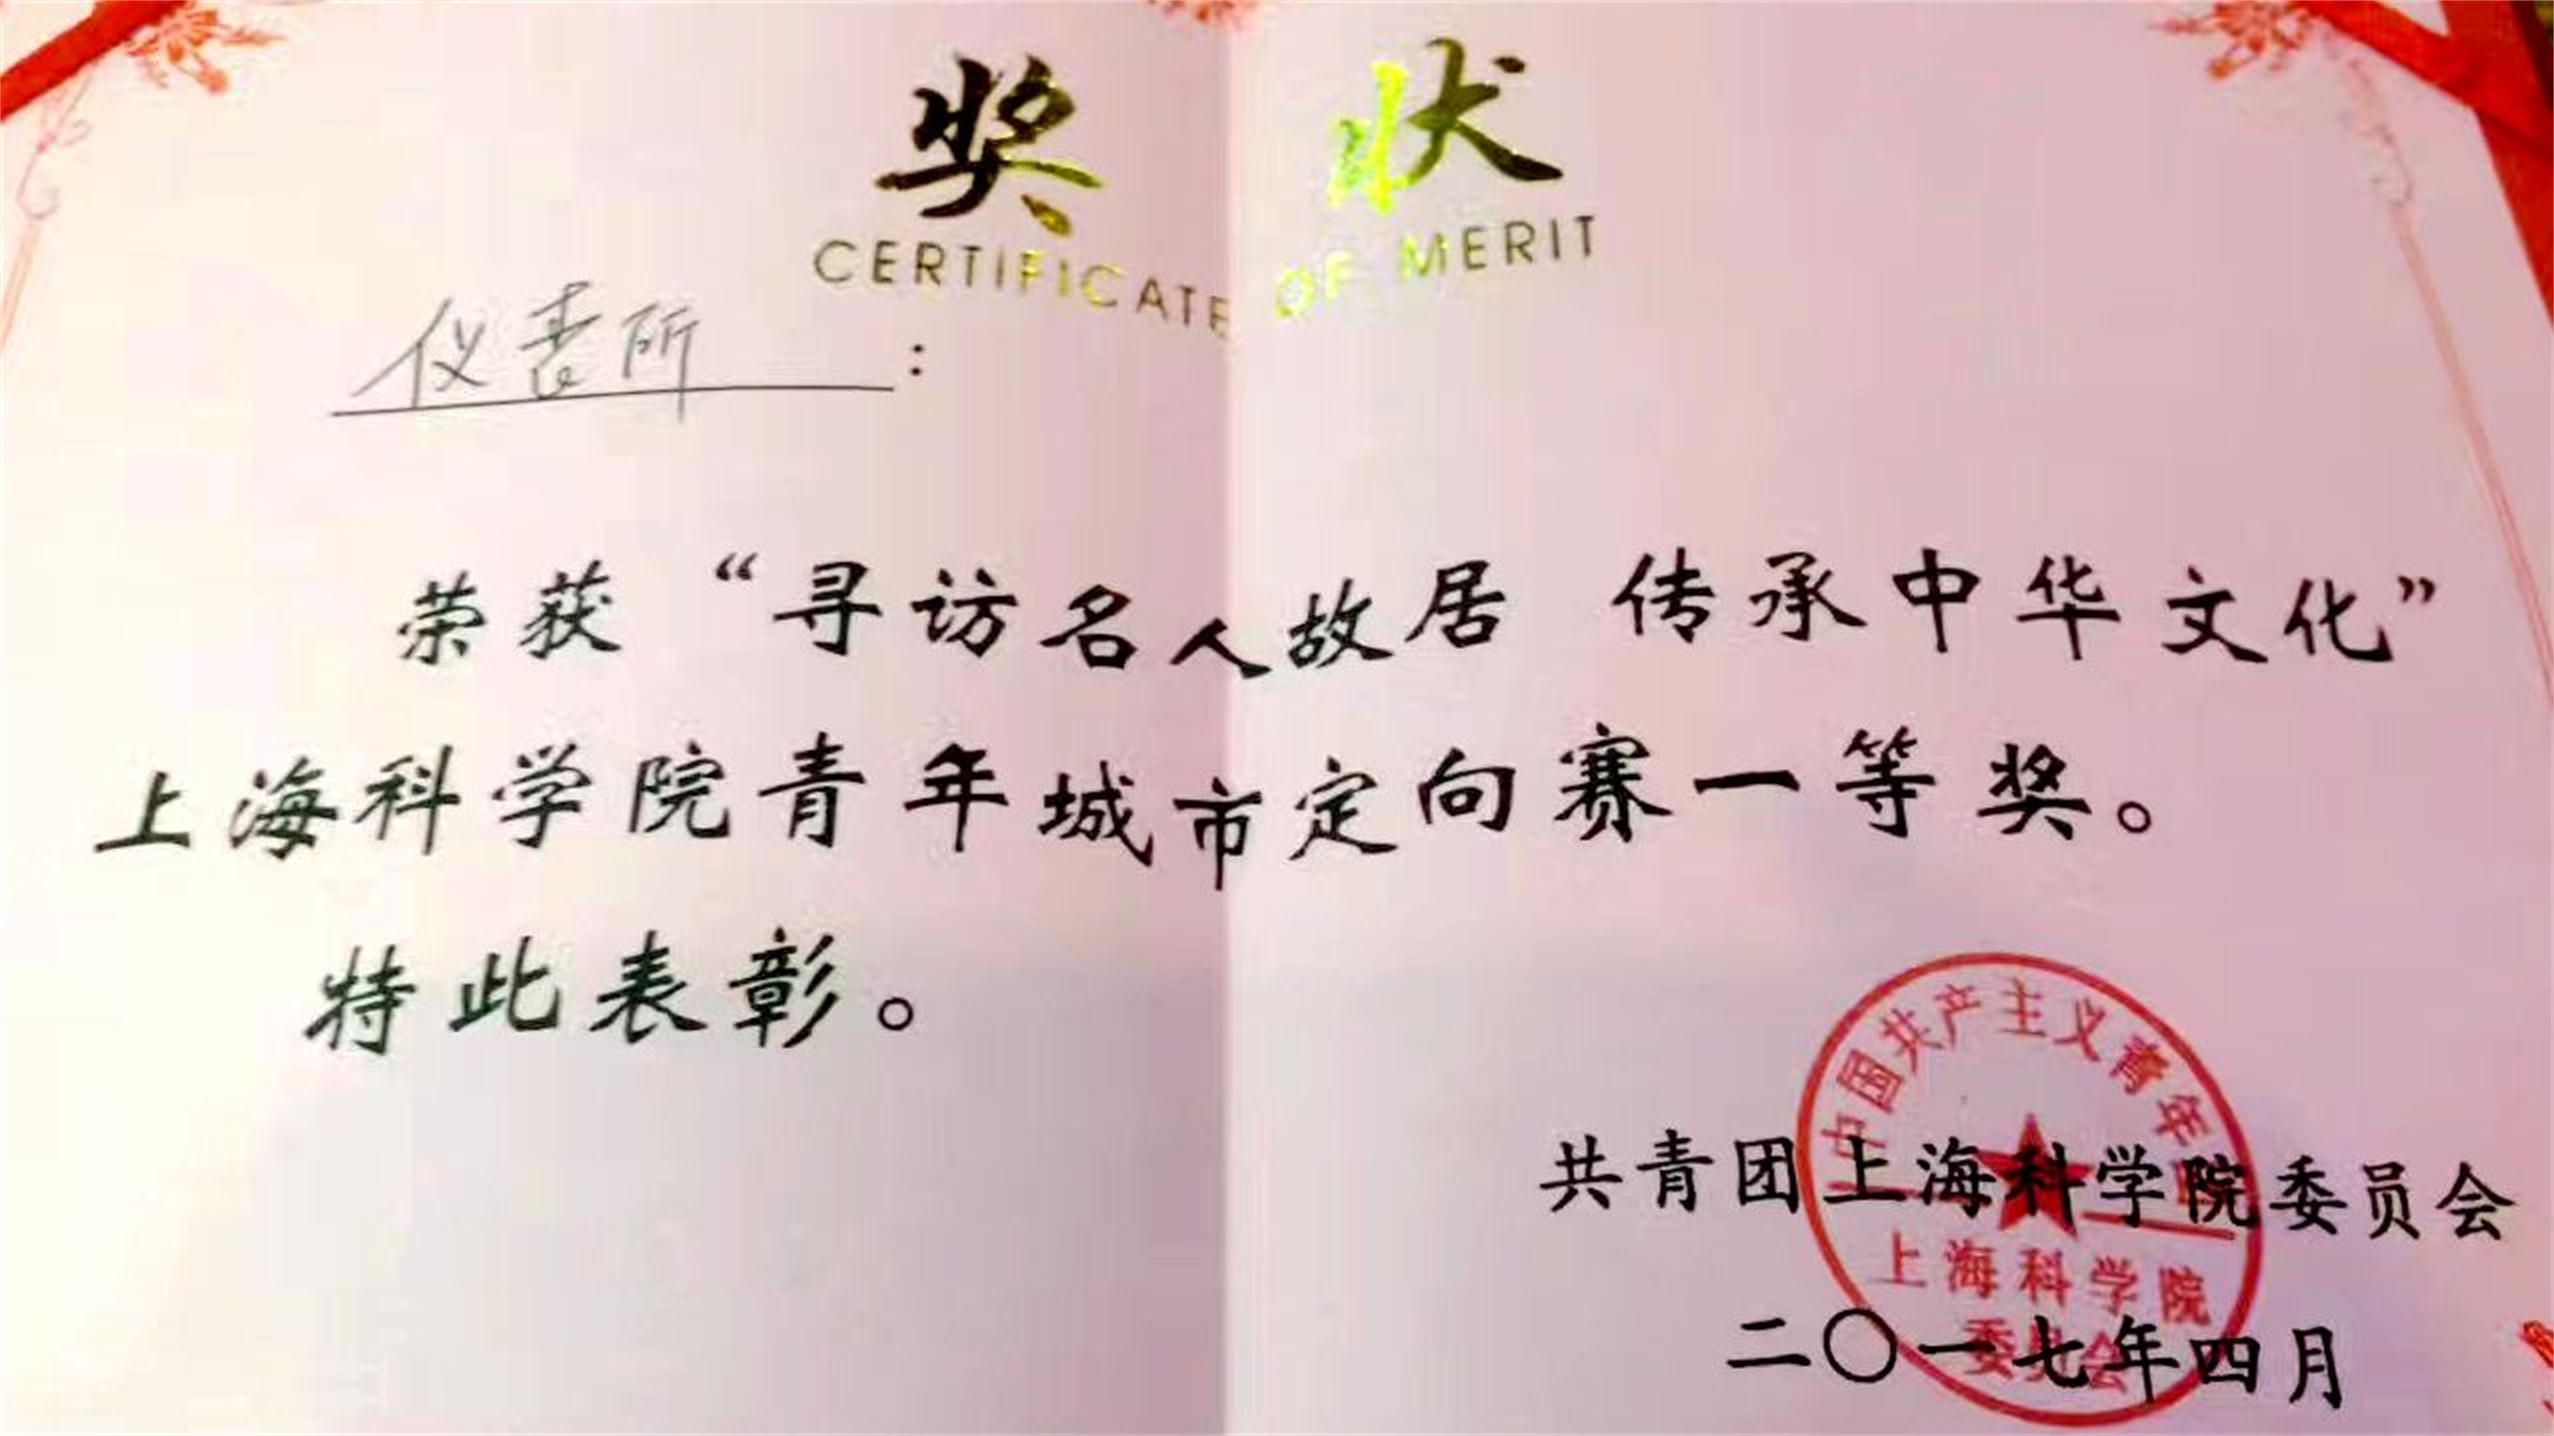 奖 状
CERTIFICATE OF MERIT
仪表所：
荣获“寻访名人故居 传承中华文化”
上海科学院青年城市定向赛一等奖。
特此表彰。
共青团上海科学院委员会
二〇一七年四月
中国共产主义青年团
上海科学院
委员会